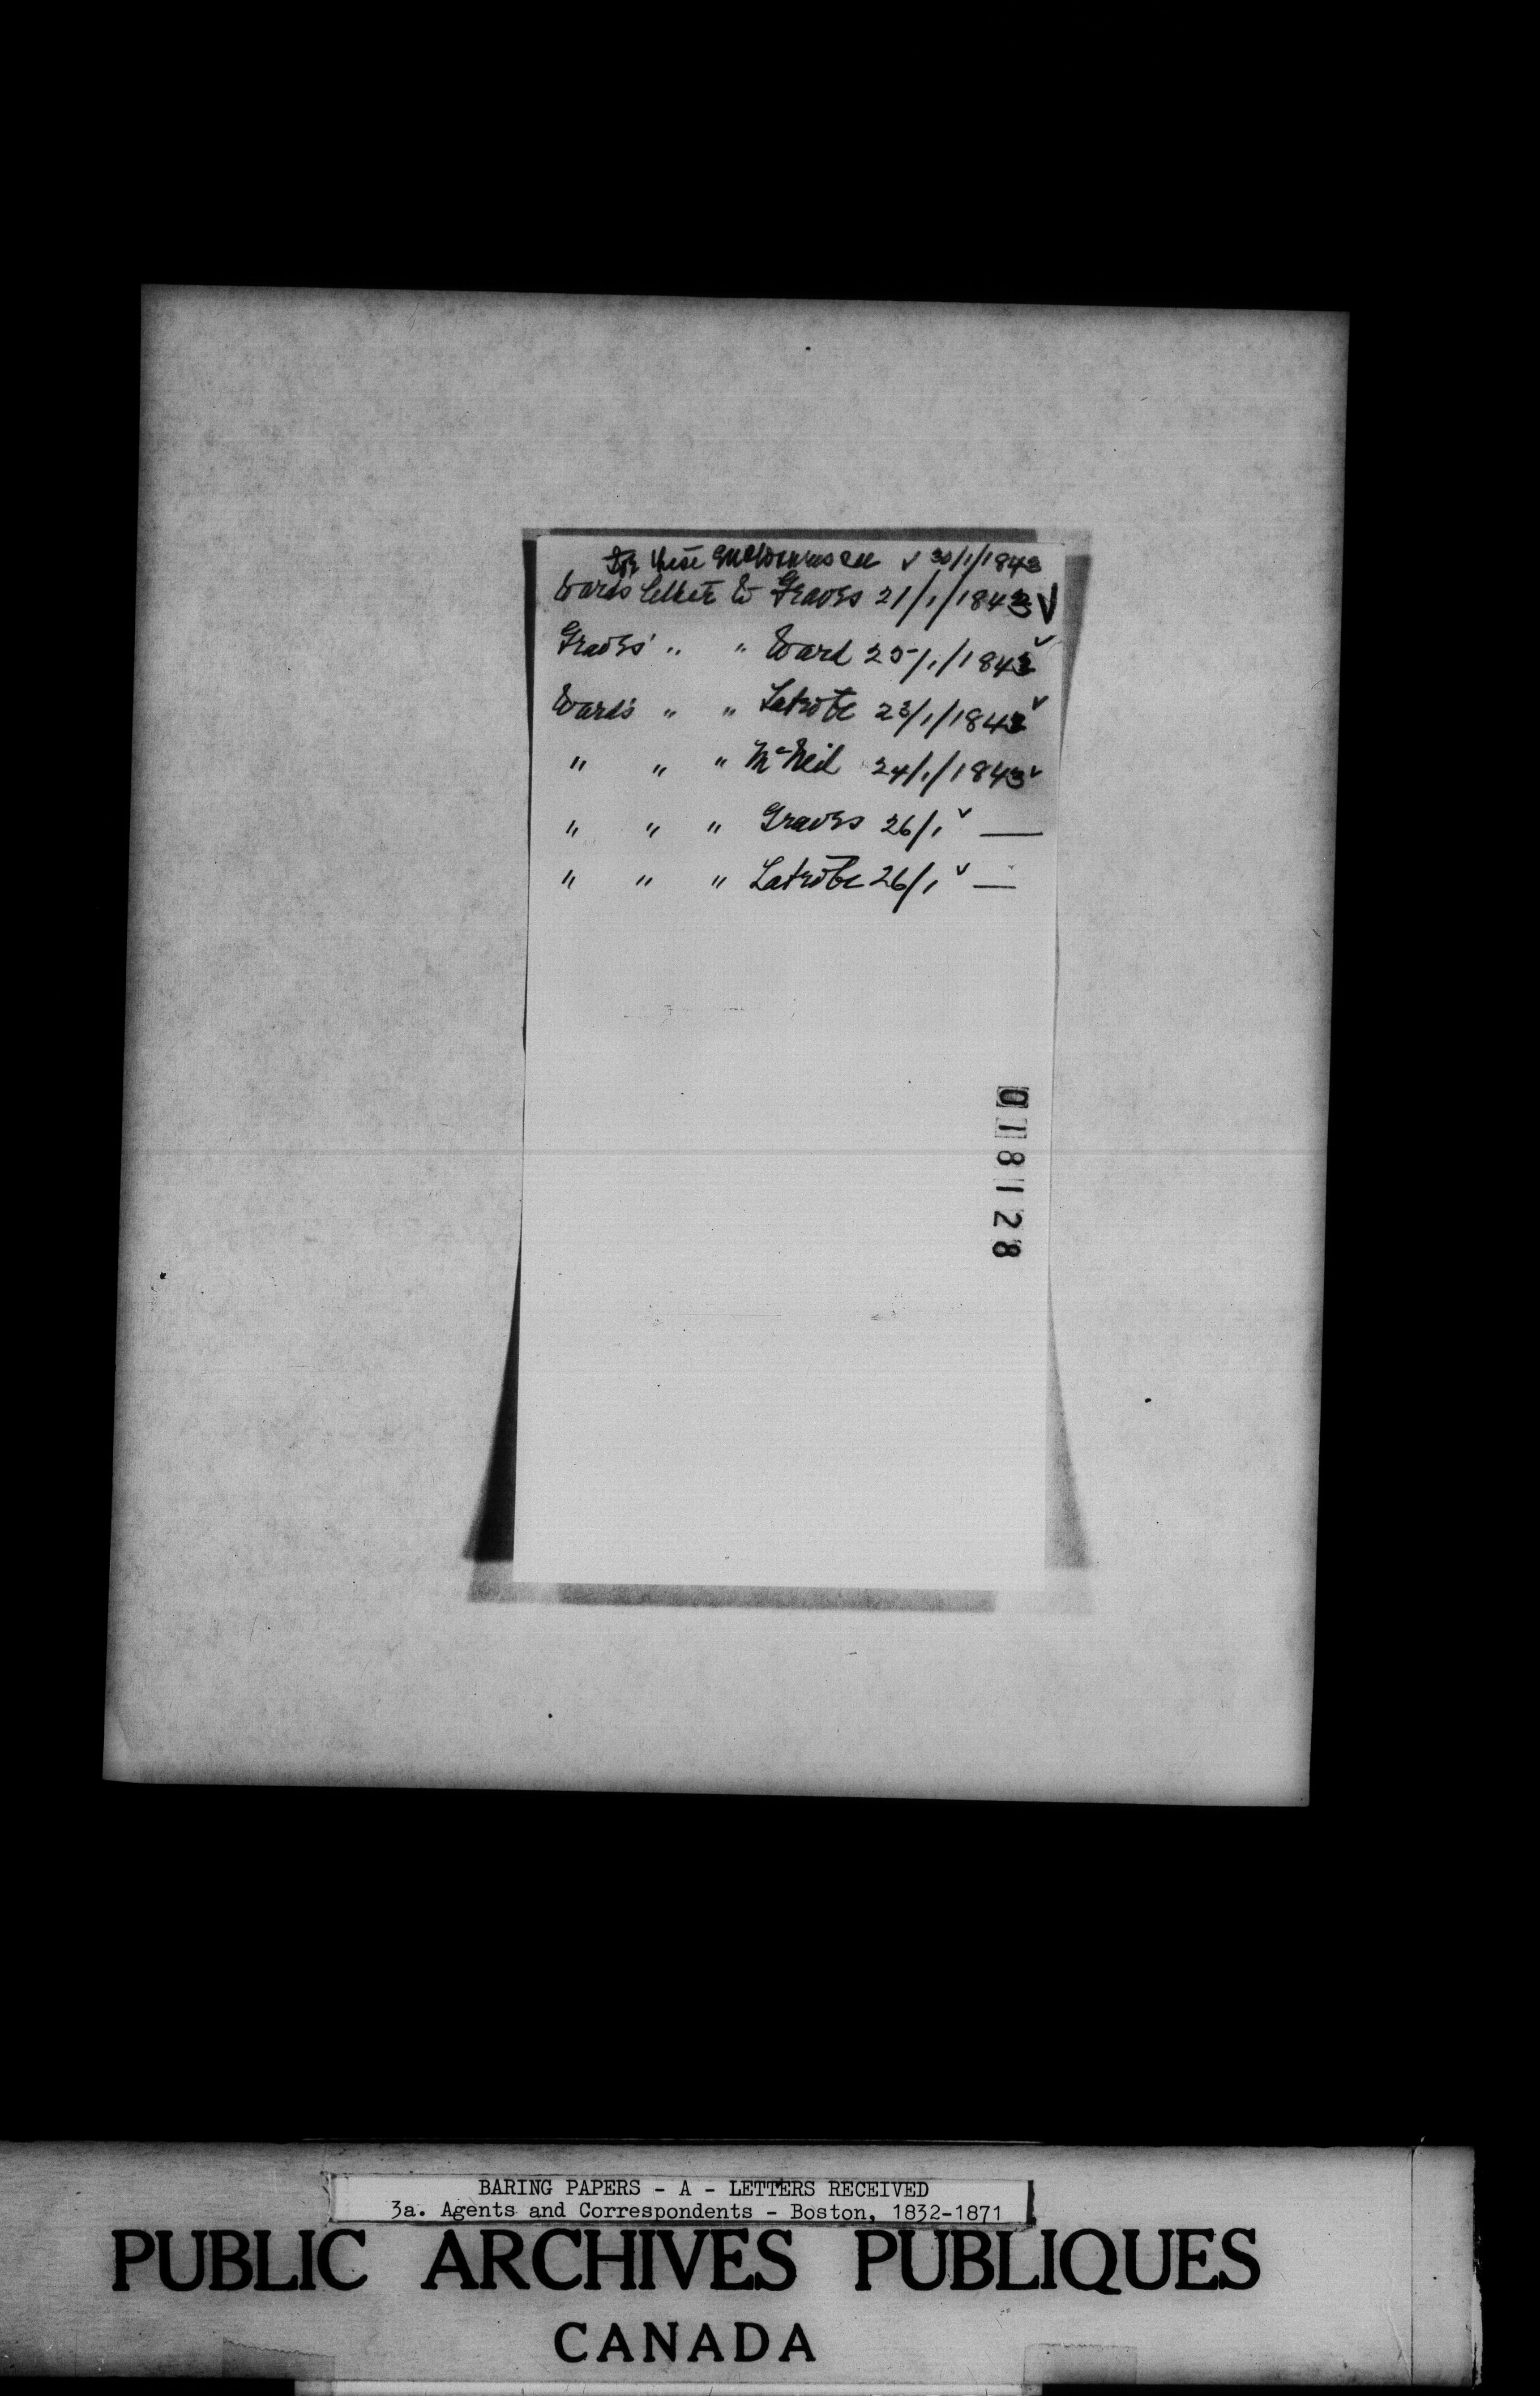 For these enclosures see ✓ 30/1/1843
Wards letter to Graves 21/1/1843 ✓
Graves' " " Ward 25/1/1843 ✓
Wards " " Latrobe 23/1/1843 ✓
" " " McNeil 24/1/1843 ✓
" " " Graves 26/1 ✓ —
" " " Latrobe 26/1 ✓ —
018128
BARING PAPERS - A - LETTERS RECEIVED
3a. Agents and Correspondents - Boston, 1832-1871
PUBLIC ARCHIVES PUBLIQUES
CANADA